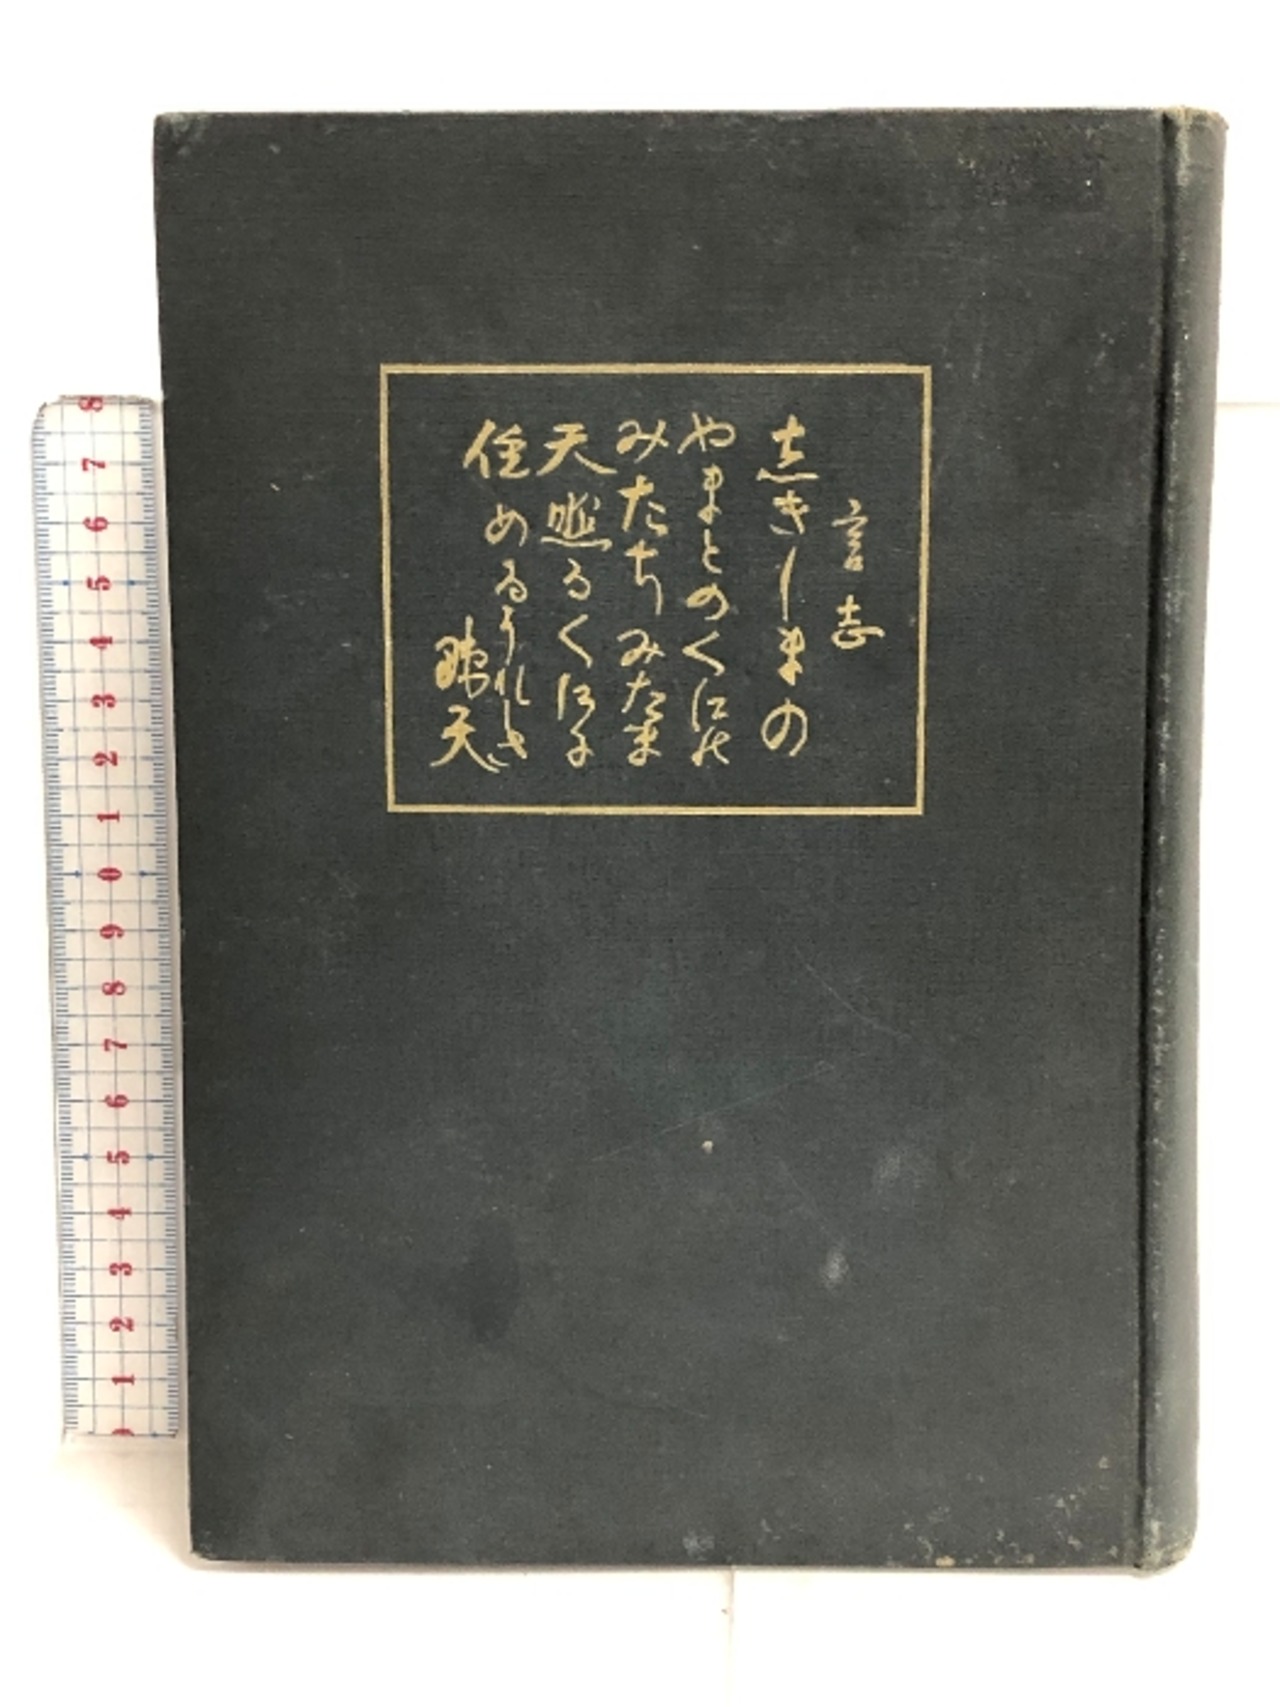 言志
志きしまの
やまとのくにの
みたちみたま
天照るくにに
住めるうれしさ
天
8
7
6
5
4
3
2
1
0
9
8
7
6
5
4
3
2
1
0